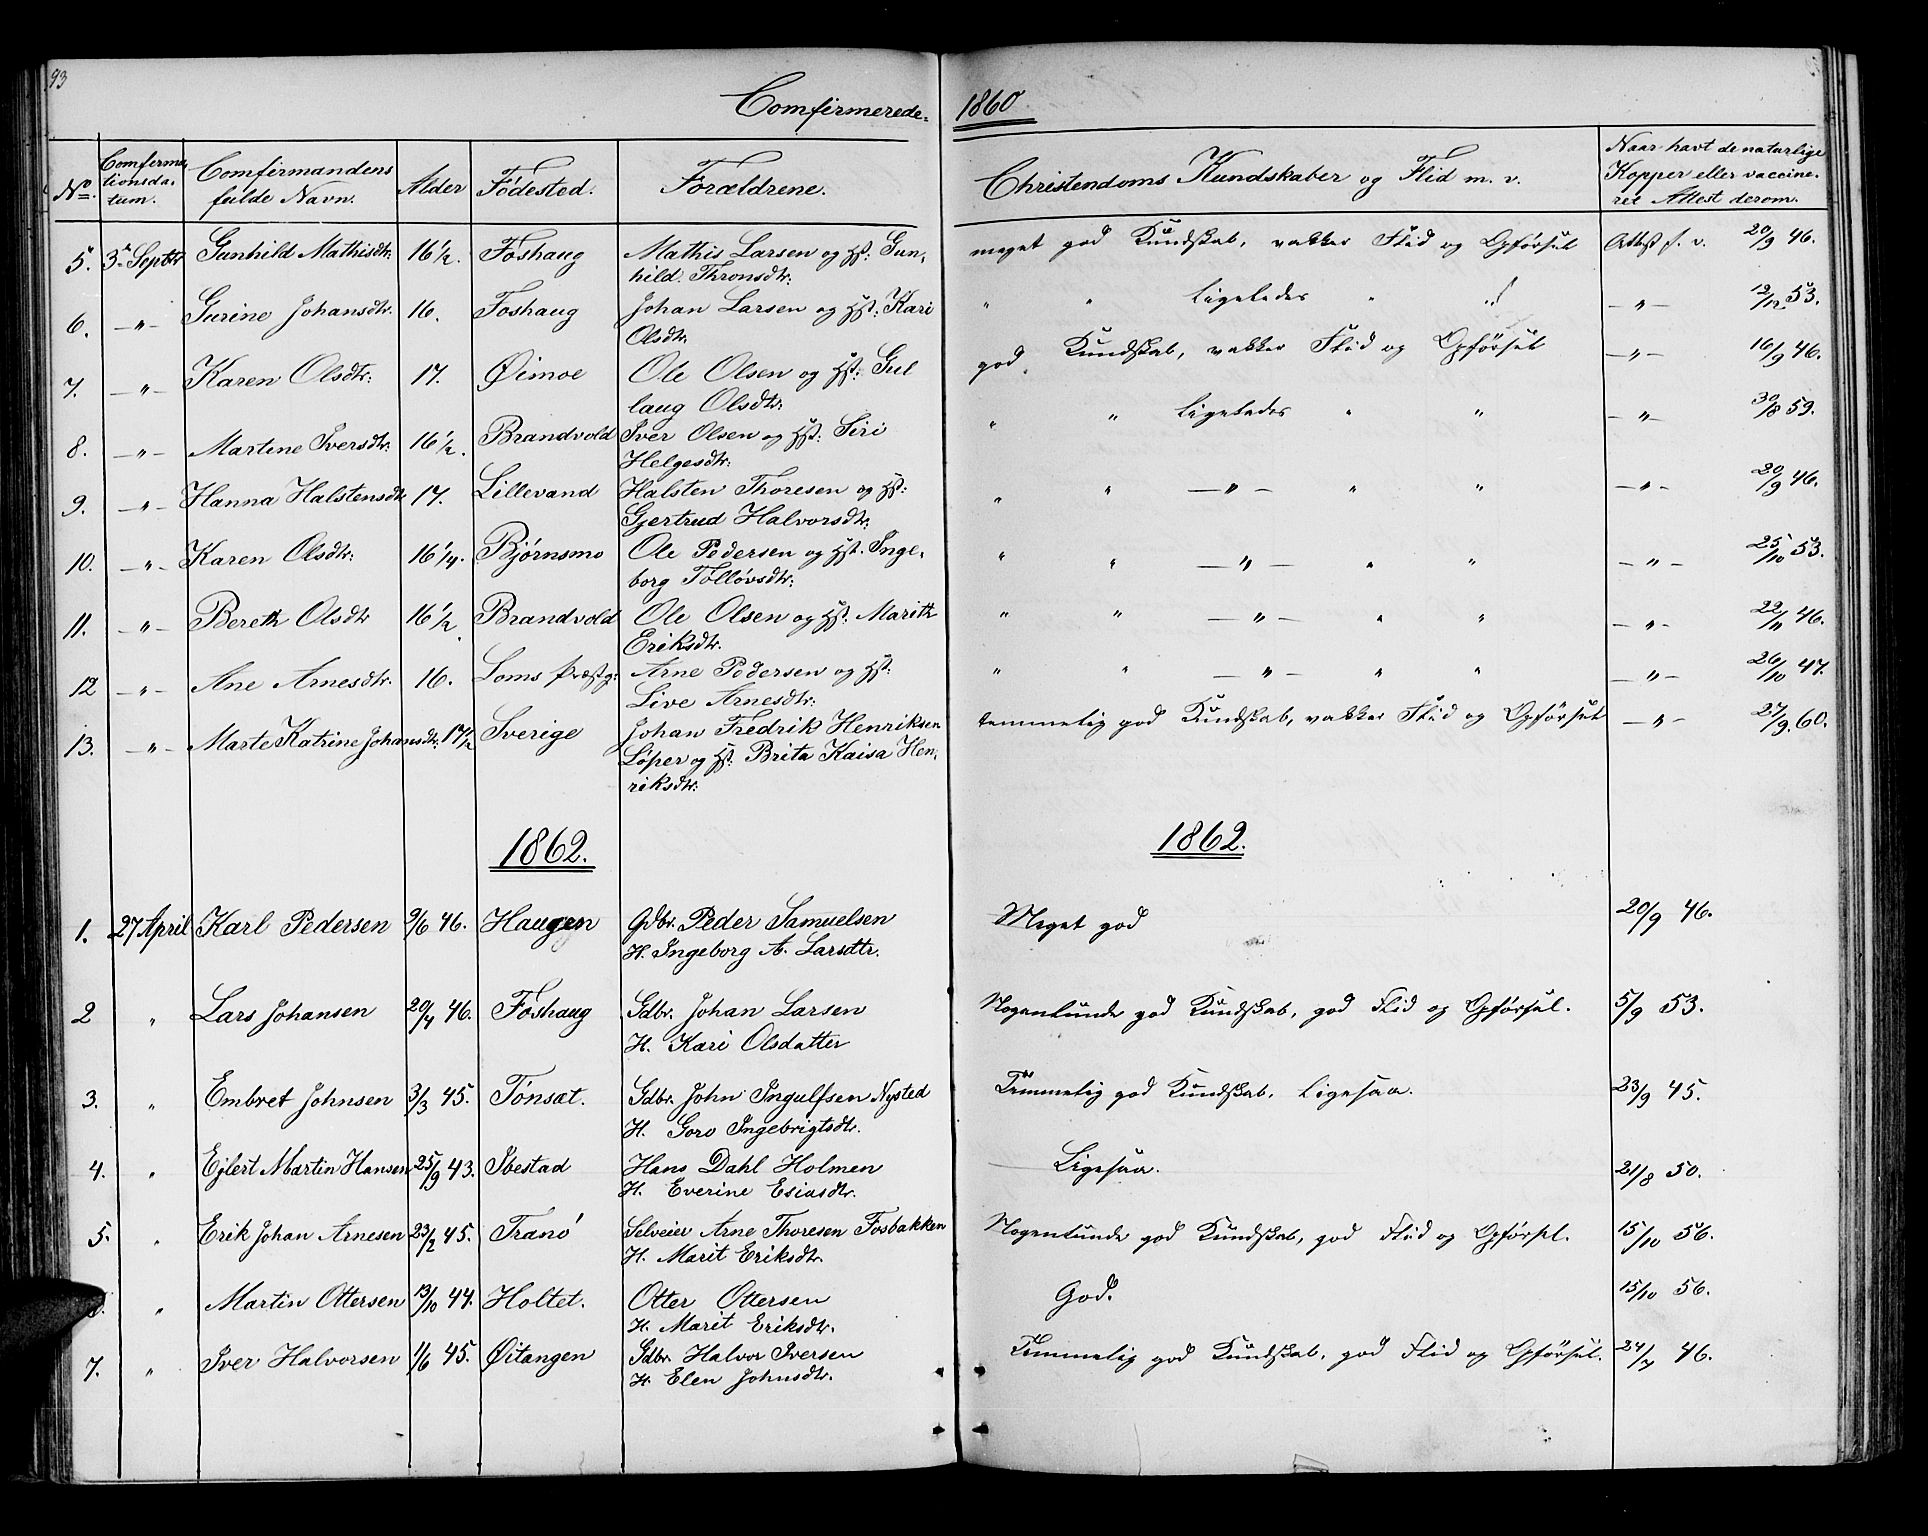 93
Comfirmerede=
1860
No. Comfirma, tionsda, tum. Comfirmandens fulde Navn. Alder Födested. Forældrene. Christendoms Kundskaber og Flid m. v. Naar havt de naturlige Kopper eller vaccine, ret Attest derom.
5. 3. Septbr Gunhild Mathisdtr: 16 1/2. Foshaug Mathis Larsen og Hst: Gun, meget god Kundskab, vakker Flid og Opførsel Attest f. v. 20/9 46.
hild. Thronsdtr:
6. —"— Gurine Johansdtr: 16. Foshaug Johan Larsen og Hst: Kari " " ligeledes " " —"— 12/12 53.
Olsdtr:
7. —"— Karen Olsdtr: 17. Øimoe Ole Olsen og Hst: Gul god Kundskab, vakker Flid og Opførsel —"— 16/9 46.
laug Olsdtr:
8. —"— Martine Iversdtr: 16 1/2. Brandvold Iver Olsen og Hst: Siri " " ligeledes " " —"— 30/8 59.
Helgesdtr:
9. —"— Hanna Halstensdtr 17. Lillevand Halsten Thoresen og Hst: " " —"— " " —"— 20/9 46.
Gjertrud Halvorsdtr:
10. —"— Karen Olsdtr: 16 1/4. Bjørnsmo Ole Pedersen og Hst. Inge, " " —"— " " —"— 25/10 53.
borg Tølløvsdtr:
11. —"— Bereth Olsdtr 16 1/2. Brandvold Ole Olsen og Hst: Marith " " —"— " " —"— 22/11 46.
Eriksdtr.
12 —"— Ane Arnesdtr. 16. Loms præstg: Arne Pedersen og Hst: " " —"— " " —"— 26/10 47.
Live Arnesdtr:
13. —"— Marte Katrine Johansdtr: 17 1/2 Sverige Johan Fredrik Henriksen temmelig god Kundskab, vakker Flid og Opførsel —"— 27/9 60.
Löper og Hst: Brita Kaisa Hen,
riksdtr:
1862. 1862.
1. 27 April Karl Pedersen 9/6 46. Haugen Gdbr. Peder Samuelsen Meget god 20/9 46.
H. Ingeborg A. Larsdtr.
2 " Lars Johansen 20/4 46. Foshaug Gdbr. Johan Larsen Nogenlunde god Kundskab, god Flid og Opførsel. 5/9 53.
H. Kari Olsdatter
3. " Embret Johnsen 3/3 45. Tönsæt. Gdbr. John Ingulfsen Nysted Temmelig god Kundskab. Ligesaa. 23/9 45.
H. Goro Ingebrigtsdtr.
4. " Ejlert Martin Hansen 25/9 43. Ibestad Hans Dahl Holmen Ligesaa. 21/8 50.
H. Everine Esiasdtr.
5. " Erik Johan Arnesen 23/2 45. Tranö Selveier Arne Thoresen Fosbakken Nogenlunde god Kundskab, god Flid og Opførsel. 15/10 56.
H. Marit Eriksdtr.
" Martin Ottersen 13/10 44. Holtet. Otter Ottersen God. 15/10 56.
H. Marit Eriksdtr.
7. " Iver Halvorsen 1/6 45. Øitangen Gdbr. Halvor Iversen Temmelig god Kundskab, god Flid og Opførsel. 24/7 46.
H. Elen Johnsdtr.